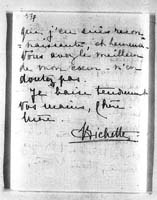 que j'en suis recon-
naissante, et
vous avez le meilleur
de mon cœur, n'en
doutez pas.
Je baise tendrement
vos mains, chère